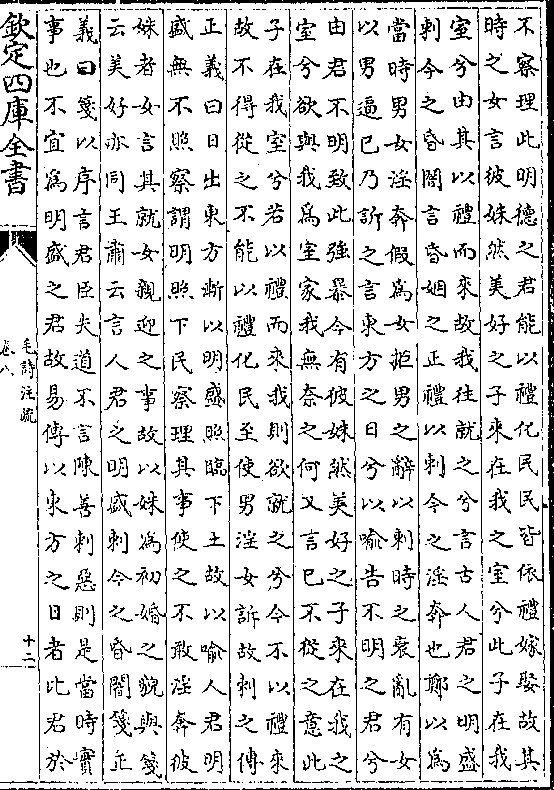 不察理此明德之君能以禮化民民皆依禮嫁娶故其
時之女言彼姝然美好之子來在我之室兮此子在我
室兮由其以禮而來故我往就之兮言古人君之明盛
刺今之昏闇言昏姻之正禮以刺今之淫奔也鄭以為
當時男女淫奔假為女拒男之辭以刺時之衰亂有女
以男逼己乃訴之言東方之日兮以喻告不明之君兮
由君不明致此強暴今有彼姝然美好之子來在我之
室兮欲與我為室家我無奈之何又言己不從之意此
子在我室兮若以禮而來我則欲就之兮今不以禮來
故不得從之不能以禮化民至使男淫女訴故刺之傳
正義曰日出東方漸以明盛照臨下土故以喻人君明
盛無不照察謂明照下民察理其事使之不敢淫奔彼
姝者女言其就女親迎之事故以姝為初婚之貌與箋
云美好亦同王肅云言人君之明盛刺今之昏闇箋正
義曰箋以序言君臣失道不言陳善刺惡則是當時實
事也不宜為明盛之君故易傳以東方之日者此君於
欽定四庫全書
毛詩注疏
卷八
十二